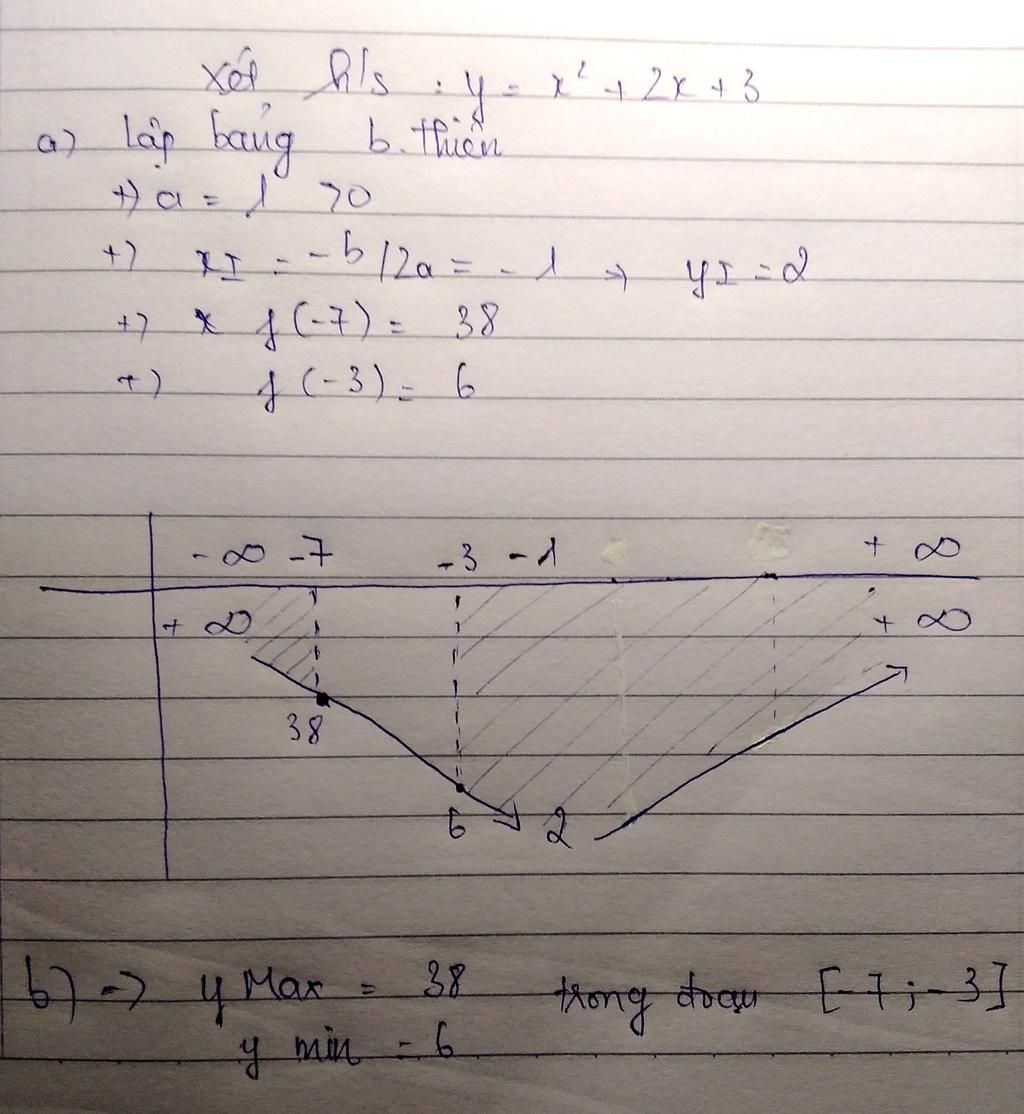 Xét h/s : y = x² + 2x + 3
a) Lập bảng b.thiên
+) a = 1 >0
+) xI = -b/2a = -1 → yI = 2
+) f(-7) = 38
+) f(-3) = 6
-∞ -7 -3 -1 +∞
+∞ +∞
38
6 2
b) → y Max = 38 trong đoạn [-7;-3]
y min = 6